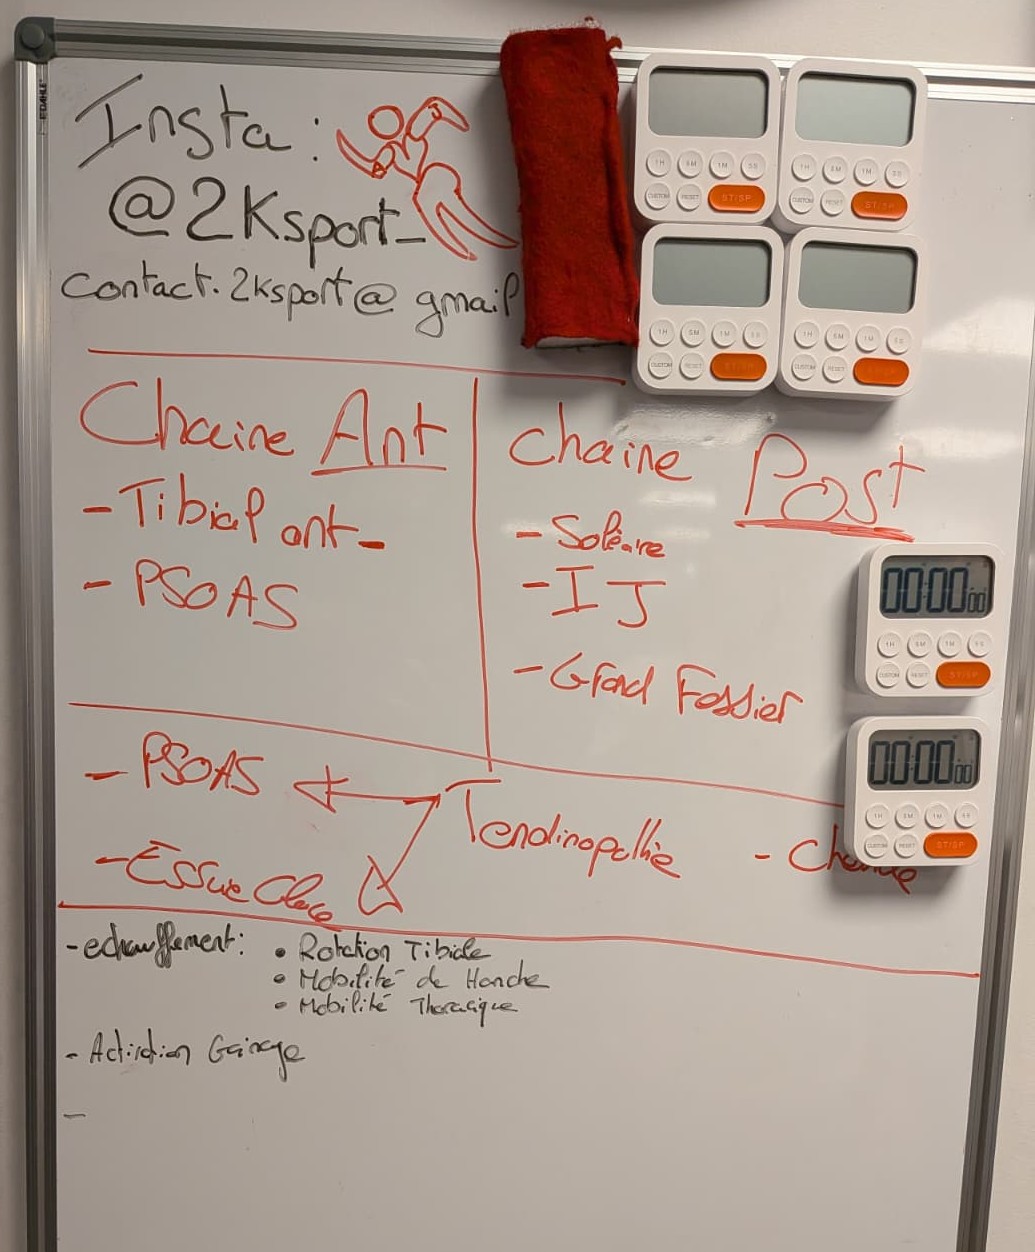 Insta :
@2Ksport_
contact.2ksport@gmail
Chaine Ant
- Tibial ant-
- PSOAS
Chaine Post
- Soléaire
- IJ
- Grand Fessier
- PSOAS
Tendinopathie
- Essuie Glace
- echauffement:
• Rotation Tibiale
• Mobilité de Hanche
• Mobilité Thoracique
- Activation Gainage
-
EDAHLE
1H 5M 1M 5S
CUSTOM RESET ST/SP
1H 5M 1M 5S
CUSTOM RESET ST/SP
1H 5M 1M 5S
CUSTOM RESET ST/SP
1H 5M 1M 5S
CUSTOM RESET ST/SP
00:00 00
1H 5M 1M 5S
CUSTOM RESET ST/SP
00:00 00
1H 5M 1M 5S
CUSTOM RESET ST/SP